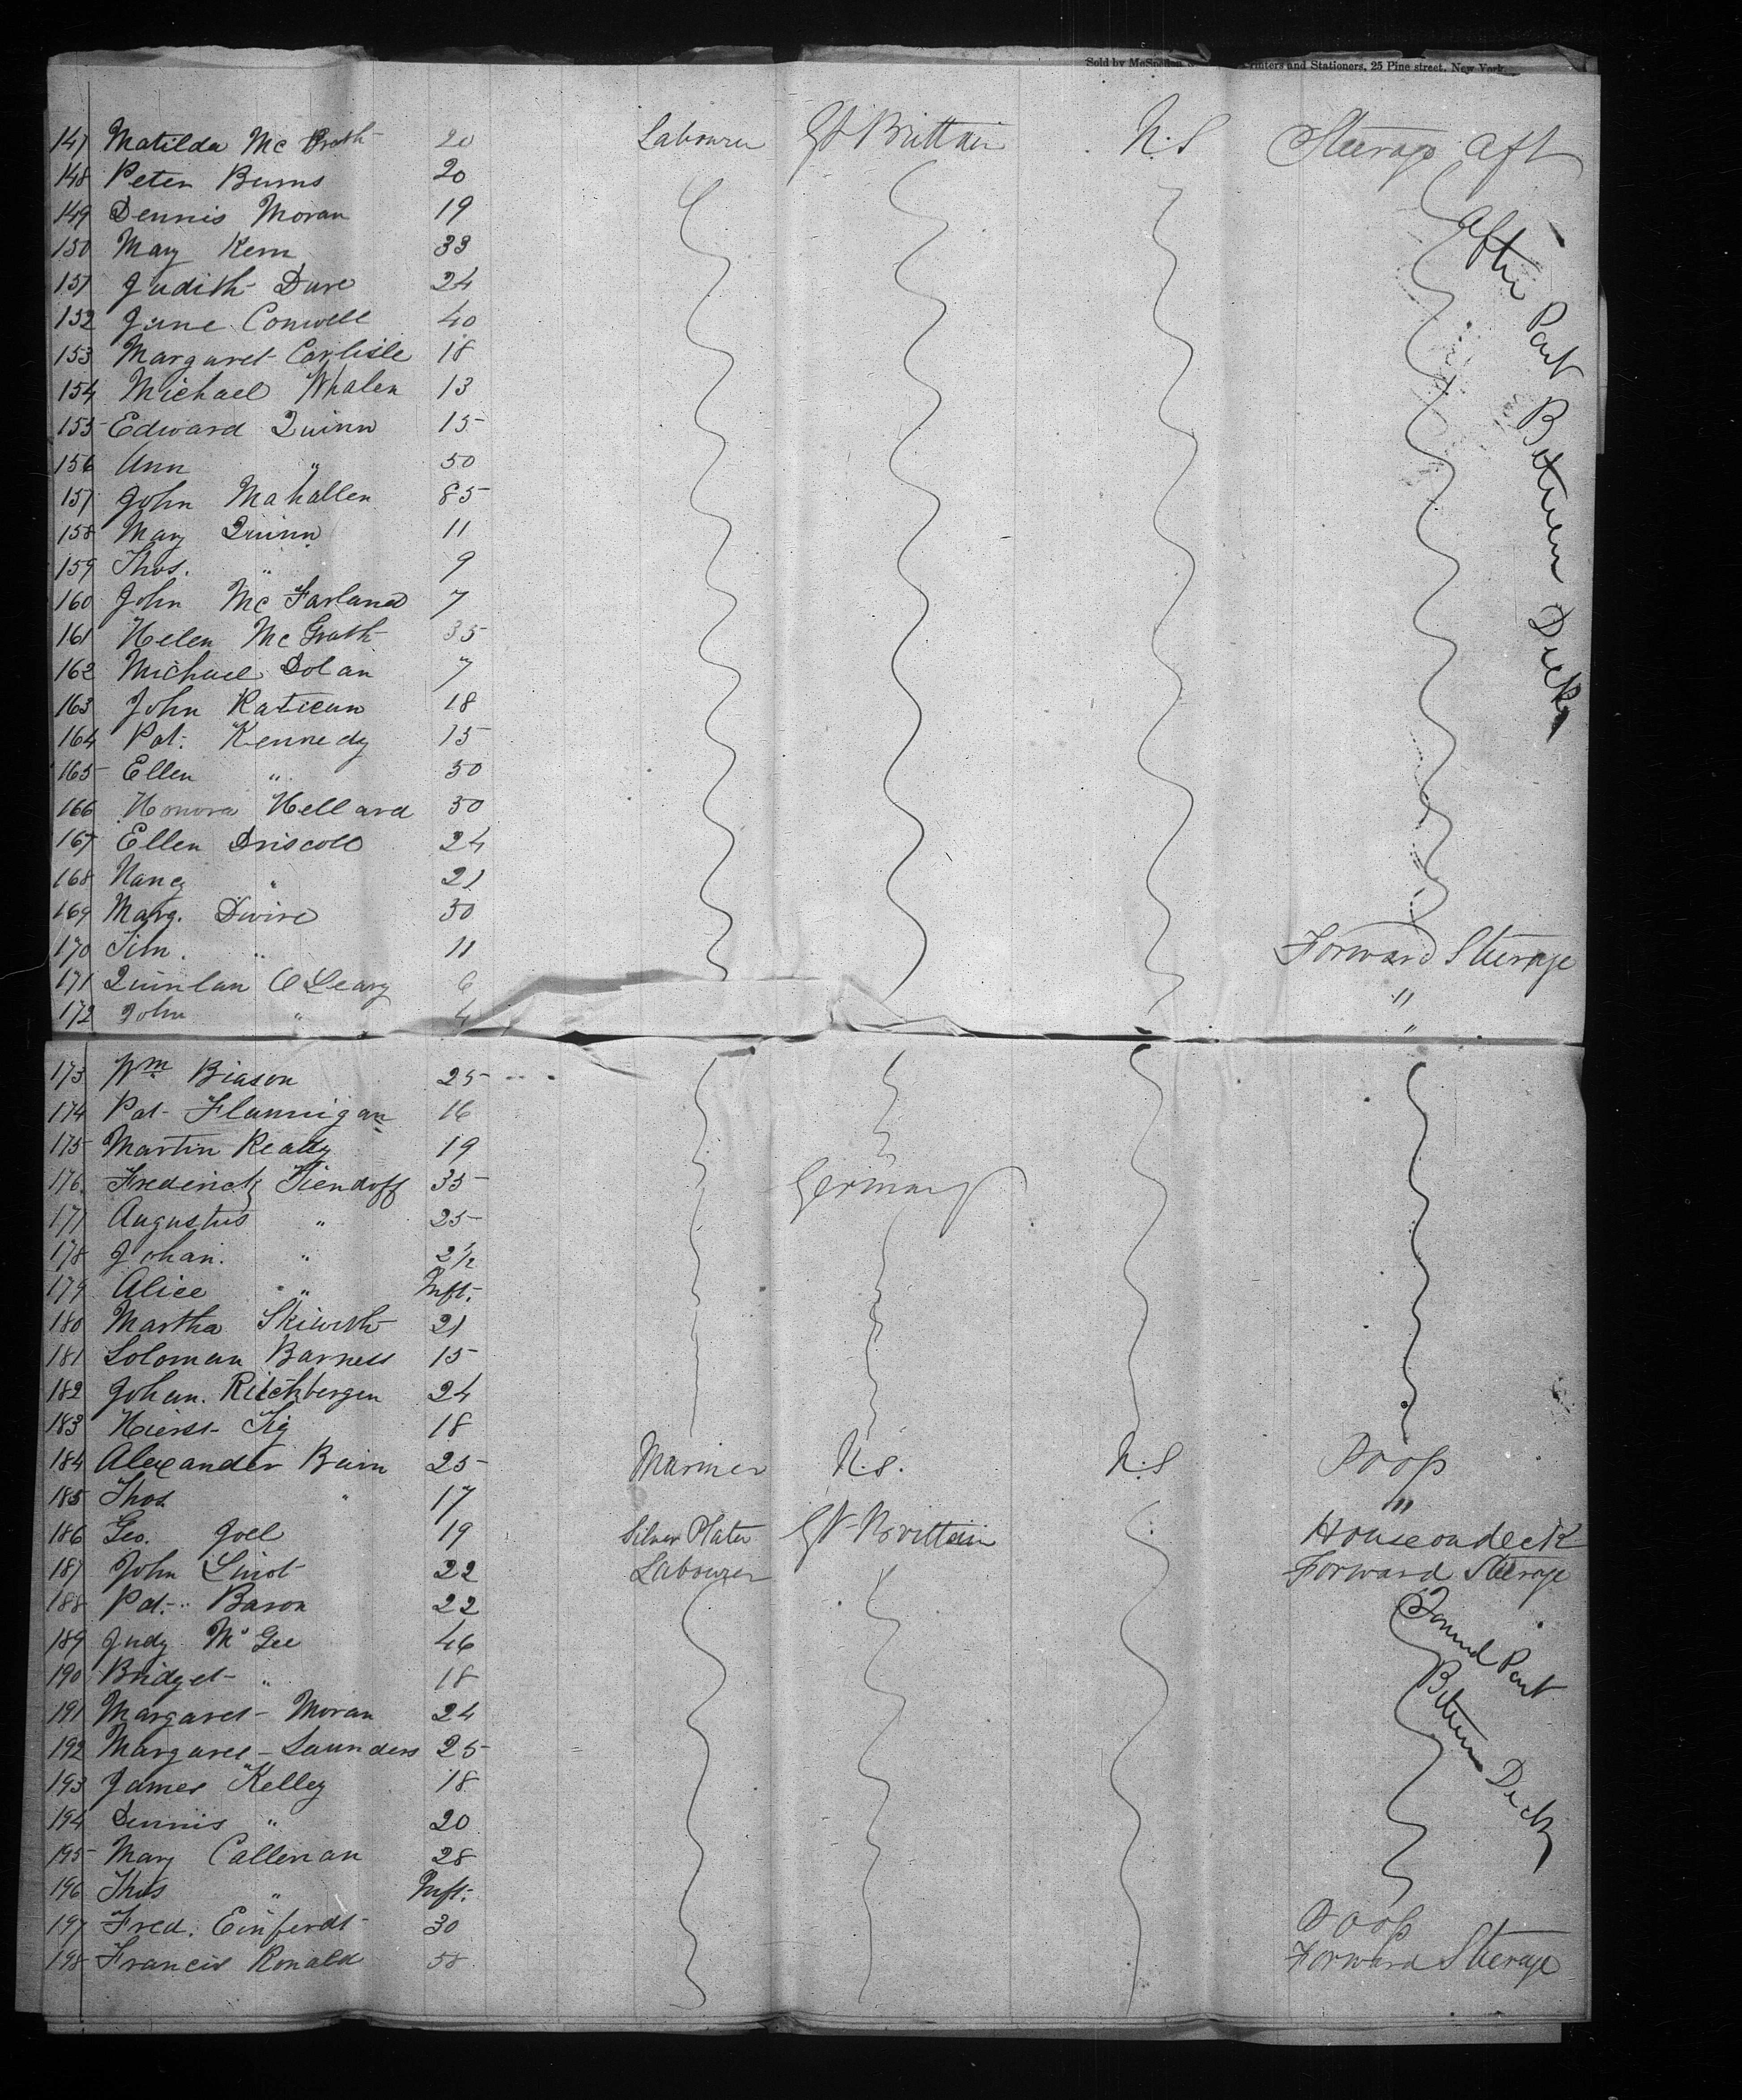 Sold by McSpedon & Printers and Stationers, 25 Pine street, New York
147 Matilda Mc Grath 20 Labourer Gt Brittain U.S Steerage aft
148 Peter Burns 20
149 Dennis Moran 19
150 Mary Kern 33
151 Judith Dure 24
152 Jane Conwell 40
153 Margaret Carlisle 18
154 Michael Whalen 13
155 Edward Quinn 15
156 Ann " 50
157 John Mahallen 85
158 Mary Quinn 11
159 Thos. " 9
160 John Mc Farland 7
161 Helen Mc Grath 35
162 Michael Dolan 7
163 John Ratican 18
164 Pat. Kennedy 15
165 Ellen " 30
166 Honora Hellard 30
167 Ellen Driscoll 24
168 Nancy " 21
169 Marg. Dwire 30
After Part Between Decks
170 Tim. " 11 Forward Steerage
171 Quinlan O Leary 6 "
172 John " 4 "
173 Wm Biason 25
174 Pat Flannigan 16
175 Martin Ready 19
176 Frederick Tiendoff 35 Germany
177 Augustus " 25
178 Johan. " 2½
179 Alice " Inft.
180 Martha Skiwith 21
181 Soloman Barness 15
182 Johan. Ritchbergen 24
183 Tig 18
184 Alexander Bain 25 Mariner U.S. U.S Poop
185 Thos " 17 "
186 Geo. Joel 19 Silver Plater Gt Brittain House on deck
187 John Linot 22 Labourer Forward Steerage
188 Pat. Baron 22
189 Judy Mc Gee 46
190 Bridget " 18
191 Margaret Moran 24
192 Margaret Saunders 25
193 James Kelley 18
194 Dennis " 20
195 Mary Callenan 28
196 Thos " Inft.
Forwd Part Between Deck
197 Fred. Einferdt 30 Poop
198 Francis Ronald 58 Forward Steerage